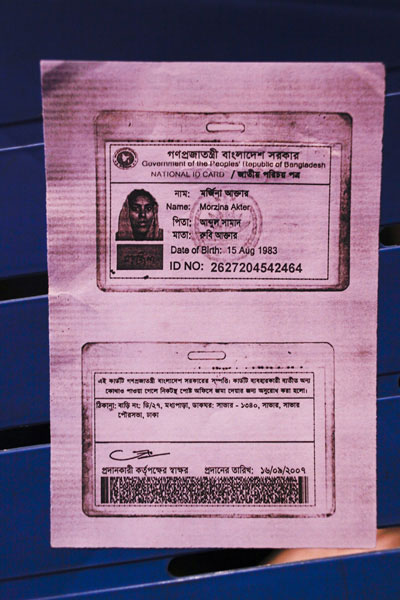 গণপ্রজাতন্ত্রী বাংলাদেশ সরকার
Government of the Peoples' Republic of Bangladesh
NATIONAL ID CARD / জাতীয় পরিচয় পত্র
নাম: মর্জিনা আক্তার
Name: Morzina Akter
পিতা: আব্দুল সামাদ
মাতা: রুবি আক্তার
Date of Birth: 15 Aug 1983
ID NO: 2627204542464
এই কার্ডটি গণপ্রজাতন্ত্রী বাংলাদেশ সরকারের সম্পত্তি। কার্ডটি ব্যবহারকারী ব্যতীত অন্য
কোথাও পাওয়া গেলে নিকটস্থ পোষ্ট অফিসে জমা দেবার জন্য অনুরোধ করা হলো।
ঠিকানা: বাড়ি নং: ডি/২৭, মধ্যপাড়া, ডাকঘর: সাভার - ১৩৪০, সাভার, সাভার
পৌরসভা, ঢাকা
প্রদানকারী কর্তৃপক্ষের স্বাক্ষর প্রদানের তারিখ: ১৬/০৯/২০০৭